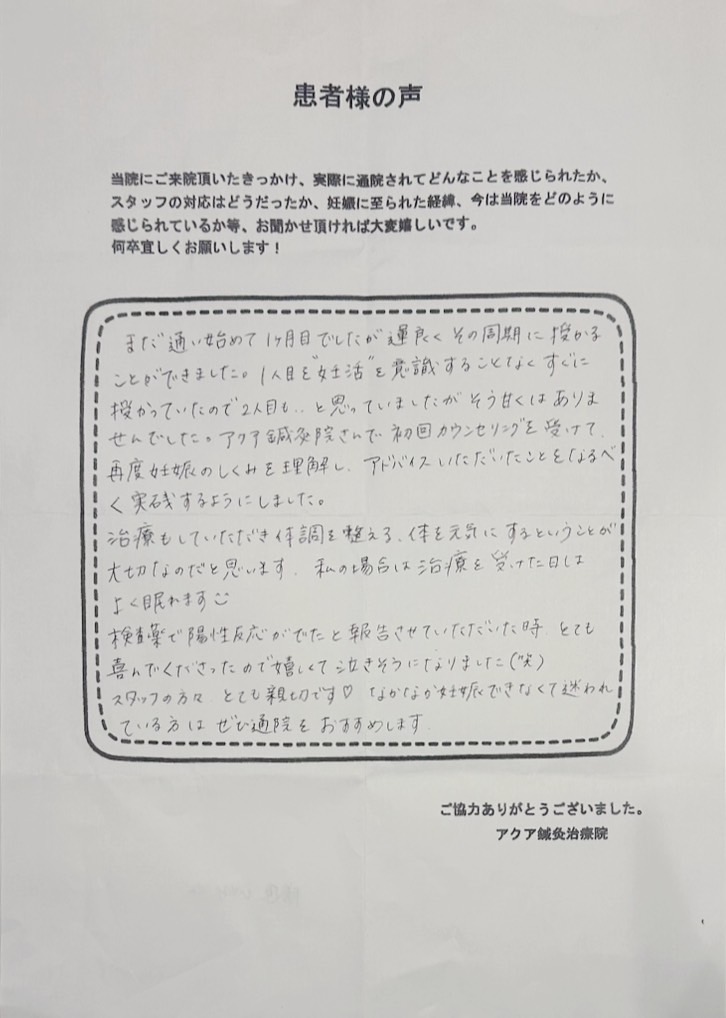 患者様の声
当院にご来院頂いたきっかけ、実際に通院されてどんなことを感じられたか、
スタッフの対応はどうだったか、妊娠に至られた経緯、今は当院をどのように
感じられているか等、お聞かせ頂ければ大変嬉しいです。
何卒宜しくお願いします！
まだ通い始めて1ヶ月目でしたが運良くその周期に授かる
ことができました。1人目を"妊活"を意識することなくすぐに
授かっていたので2人目も‥と思っていましたがそう甘くはありま
せんでした。アクア鍼灸院さんで初回カウンセリングを受けて、
再度妊娠のしくみを理解し、アドバイスいただいたことをなるべ
く実践するようにしました。
治療もしていただき体調を整える、体を元気にするということが
大切なのだと思います。私の場合は治療を受けた日は
よく眠れます
検査薬で陽性反応がでたと報告させていただいた時、とても
喜んでくださったので嬉しくて泣きそうになりました(笑)
スタッフの方々、とても親切です♡ なかなか妊娠できなくて迷われ
ている方はぜひ通院をおすすめします。
ご協力ありがとうございました。
アクア鍼灸治療院